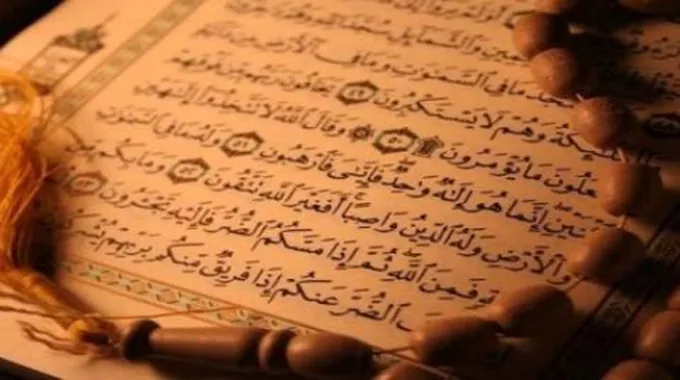 وَالشَّمَآئِلِ
يَسْجُدُ مَا فِى السَّمَٰوَٰتِ وَمَا فِى الْأَرْضِ مِن
وَهُمْ لَا يَسْتَكْبِرُونَ ﴿٤٩﴾ يَخَافُونَ رَبَّهُم مِّن فَوْقِهِمْ
مَا يُؤْمَرُونَ ۩ ﴿٥٠﴾ ۞ وَقَالَ اللَّهُ لَا تَتَّخِذُوٓا۟ إِلَٰهَيْنِ
إِنَّمَا هُوَ إِلَٰهٌ وَٰحِدٌ فَإِيَّٰىَ فَارْهَبُونِ ﴿٥١﴾ وَلَهُ مَا فِى السَّمَٰوَٰتِ
وَالْأَرْضِ وَلَهُ الدِّينُ وَاصِبًا أَفَغَيْرَ اللَّهِ تَتَّقُونَ ﴿٥٢﴾ وَمَا بِكُم
فَمِنَ اللَّهِ ثُمَّ إِذَا مَسَّكُمُ الضُّرُّ فَإِلَيْهِ تَجْـَٔرُونَ ﴿٥٣﴾
الضُّرَّ عَنكُمْ إِذَا فَرِيقٌ مِّنكُم بِرَبِّهِمْ يُشْرِكُونَ